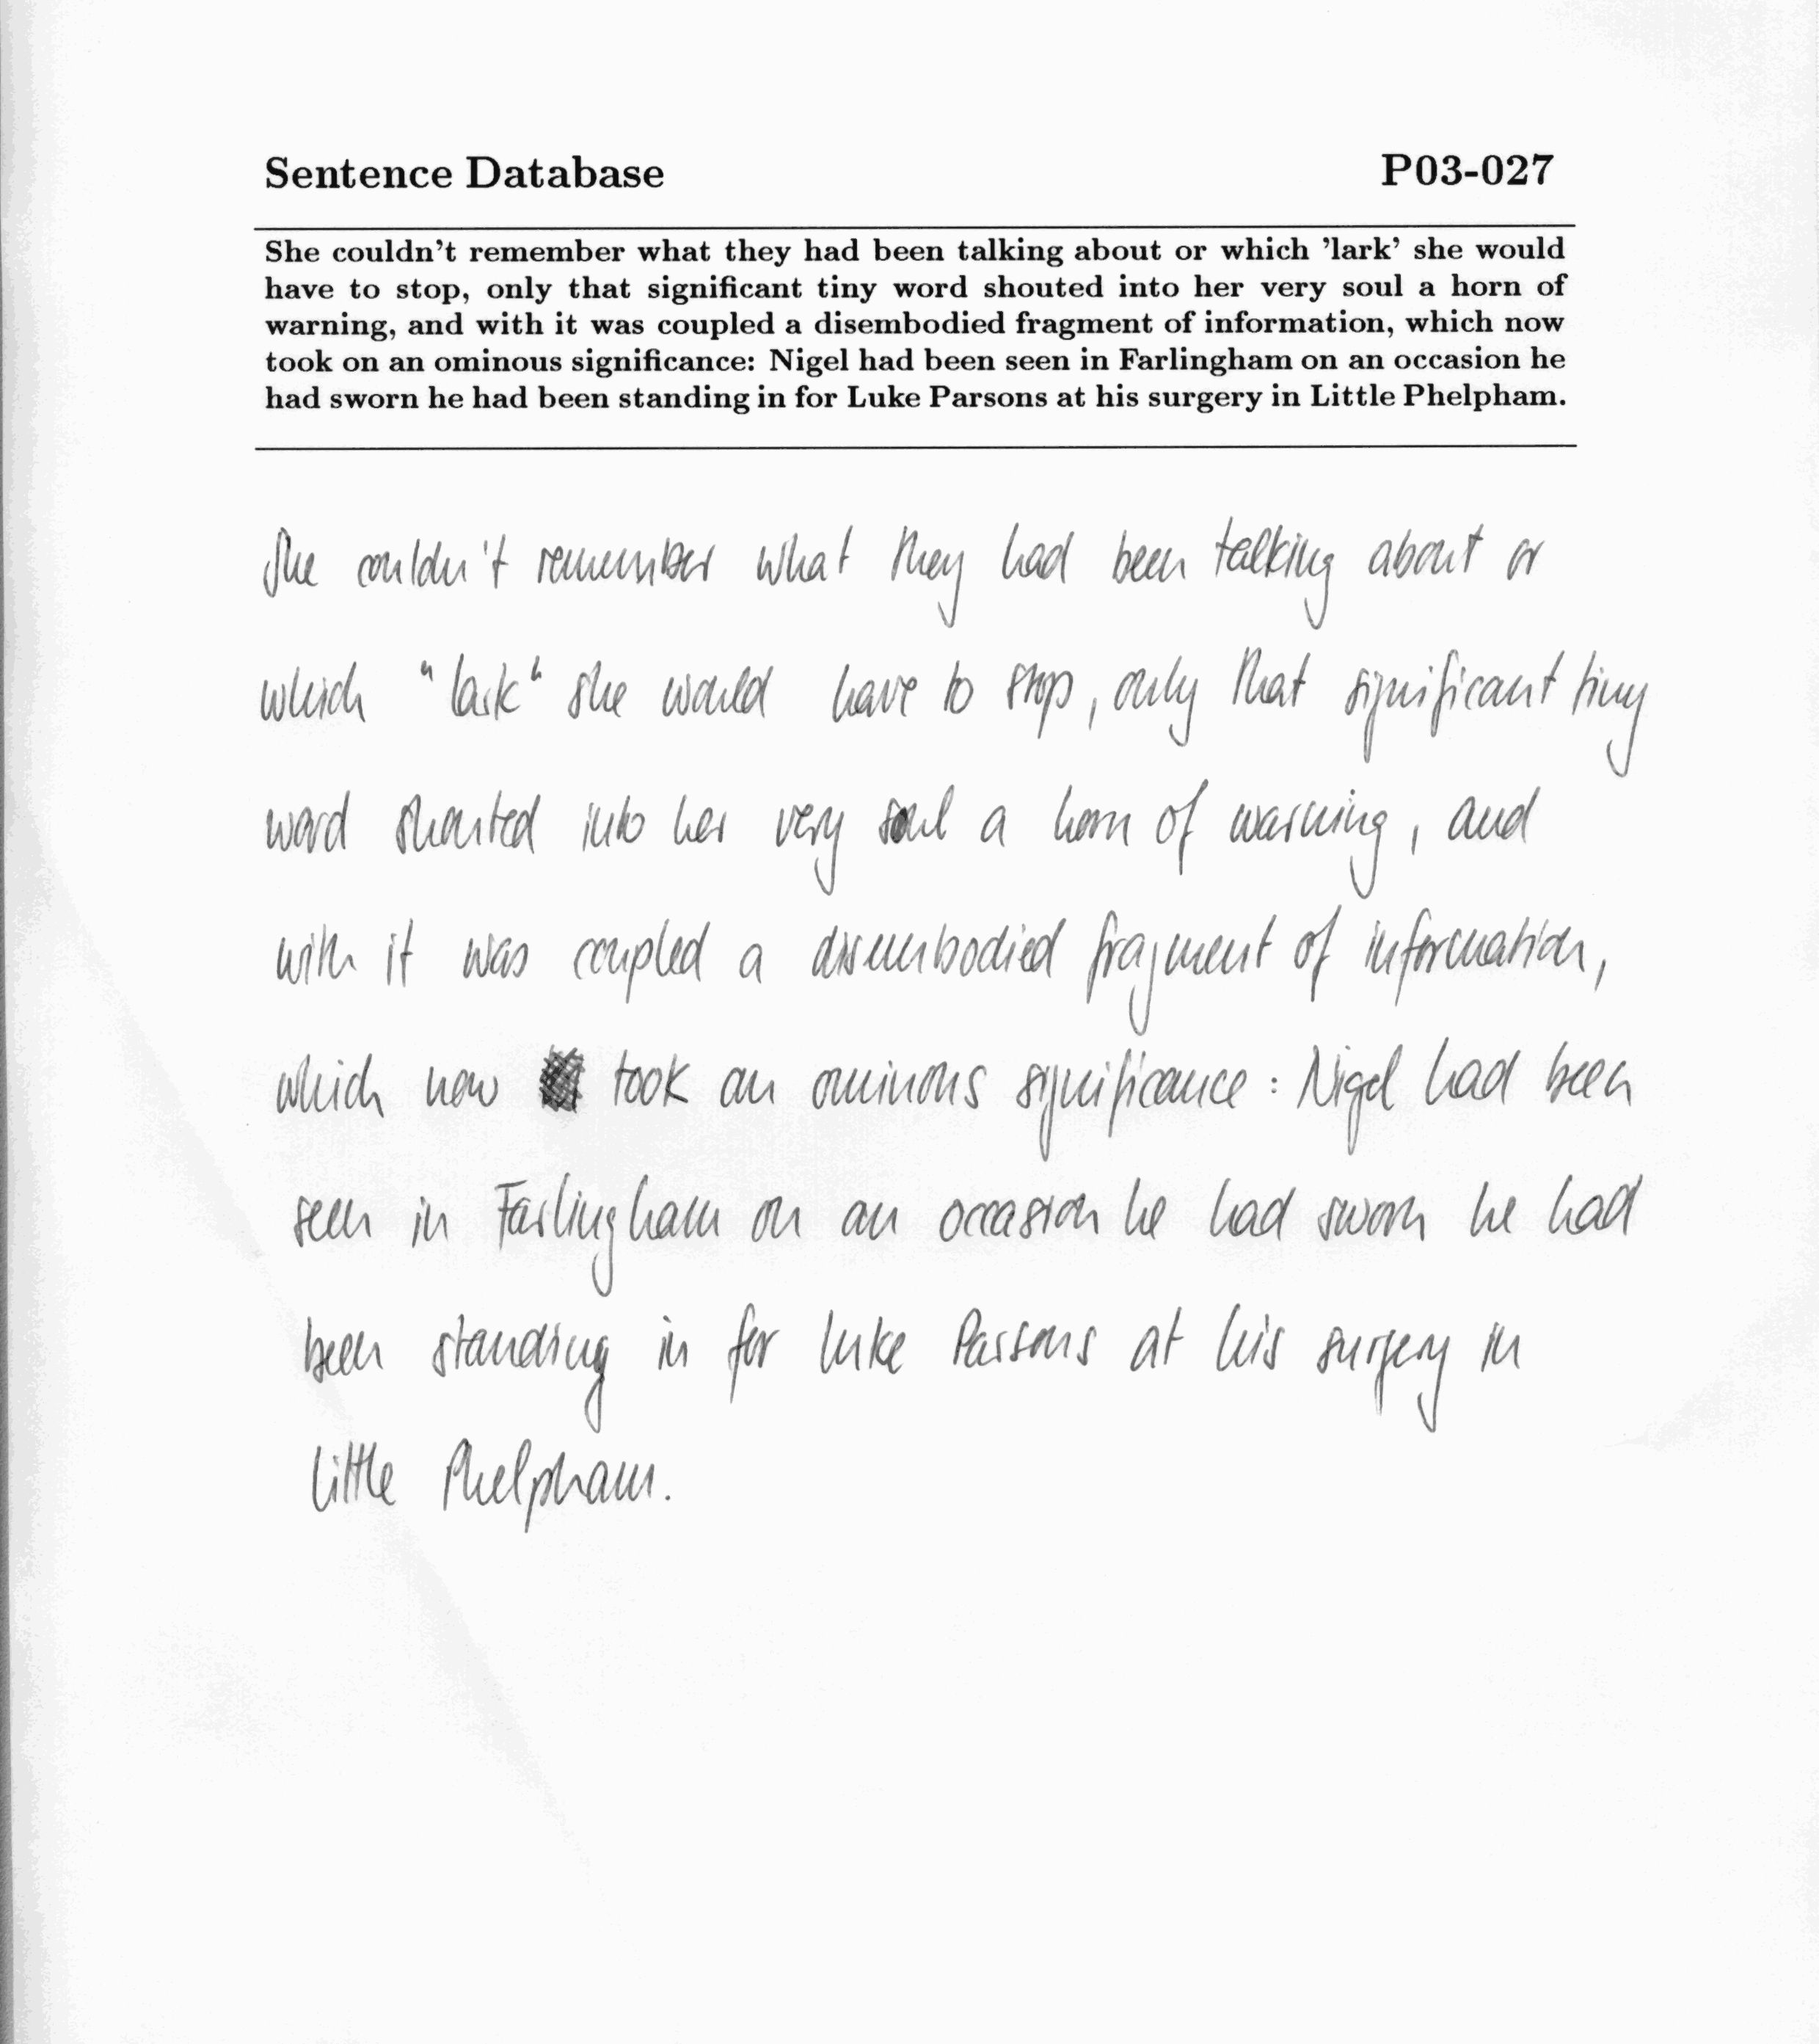 Sentence Database P03-027
She couldn't remember what they had been talking about or which 'lark' she would
have to stop, only that significant tiny word shouted into her very soul a horn of
warning, and with it was coupled a disembodied fragment of information, which now
took on an ominous significance: Nigel had been seen in Farlingham on an occasion he
had sworn he had been standing in for Luke Parsons at his surgery in Little Phelpham.
She couldn't remember what they had been talking about or
which "lark" she would have to stop, only that significant tiny
word shouted into her very soul a horn of warning, and
with it was coupled a disembodied fragment of information,
which now took an ominous significance: Nigel had been
seen in Farlingham on an occasion he had sworn he had
been standing in for Luke Parsons at his surgery in
Little Phelpham.